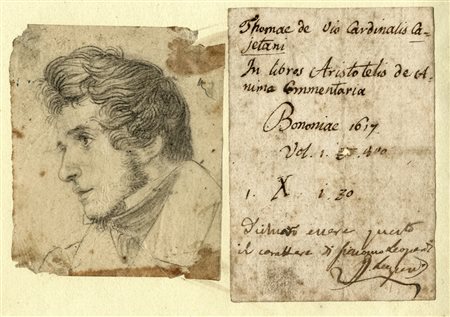 Thomae de Vio Cardinalis Ca-
jetani
In libros Aristotelis de A-
nima Commentaria
Bononiae 1617
Vol. 1.
1. X 1 30
essere questo
il carattere di Leopardi